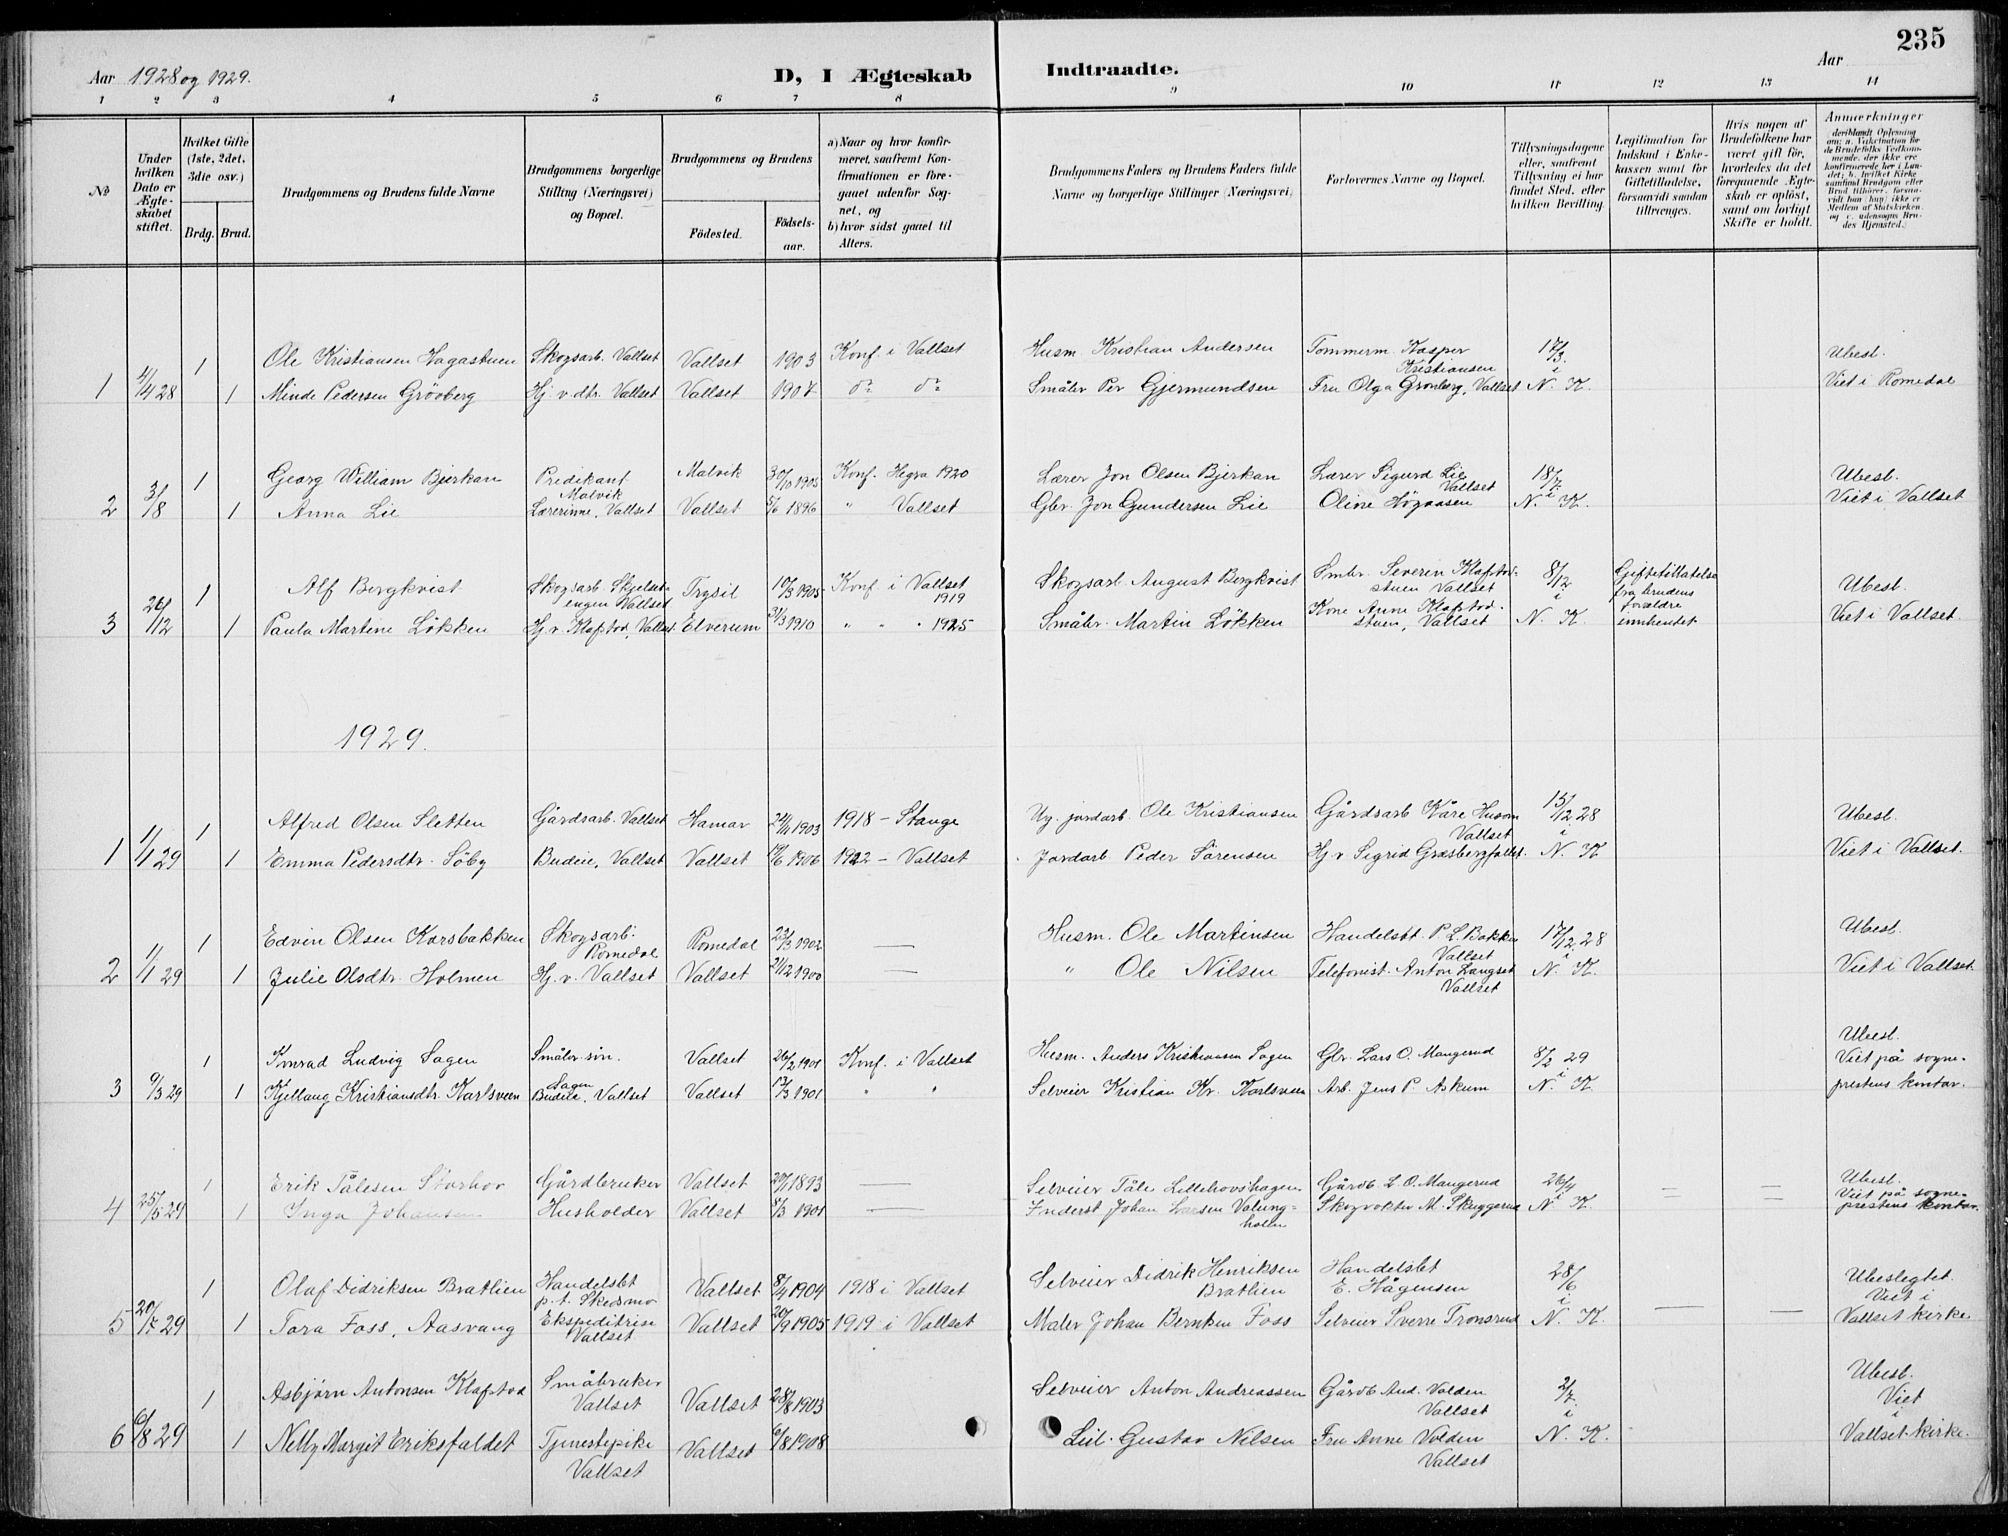 235
Aar 1928 og 1929.
D, I Ægteskab Indtraadte.
Aar
1 2 3 4 5 6 7 8 9 10 11 12 13 14
No
Under hvilken Dato er Ægteskabet stiftet.
Hvilket Gifte (1ste, 2det, 3die osv.)
Brdg. Brud.
Brudgommens og Brudens fulde Navne
Brudgommens borgerlige Stilling (Næringsvei) og Bopæl.
Brudgommens og Brudens
Fødested. Fødselsaar.
a) Naar og hvor konfirmeret, saafremt Konfirmationen er foregaaet udenfor Sognet, og
b) hvor sidst gaaet til Alters.
Brudgommens Faders og Brudens Faders fulde Navne og borgerlige Stillinger (Næringsvei)
Forlovernes Navne og Bopæl.
Tillysningsdagene eller, saafremt Tillysning ei har fundet Sted, efter hvilken Bevilling.
Legitimation for Indskud i Enkekassen samt for Giftetilladelse, forsaavidt saadan tiltrænges.
Hvis nogen af Brudefolkene har været gift før, hvorledes da det foregaaende Ægteskab er opløst, samt om lovligt Skifte er holdt.
Anmerkninger
deriblandt Oplysning om: a. Vakcination for de Brudefolks Vedkommende, der ikke ere konfirmerede her i Landet; b. hvilket Kirkesamfund Brudgom eller Brud tilhører, forsaavidt han (hun) ikke er Medlem af Statskirken, og c. udensogns Brudes Hjemsted.
1 Ole Kristiansen Hagastuen Skogsarb. Vallset Vallset 1903 Konf. i Vallset Husm. Kristian Andersen Tømmerm. Kasper Kristiansen 17/3 Ubesl.
4/4 28 1 Minde Pedersen Grövberg Hj. v. dtr. Vallset Vallset 1907 do do Småbr Per Gjermundsen Fru Olga Grønberg, Vallset i N. K. Viet i Romedal
1 Georg William Bjerkan Predikant Malvik Malvik 30/10 1905 Konf. Hegra 1920 Lærer Jon Olsen Bjerkan Lærer Sigurd Lie Vallset 18/7 Ubesl.
2 3/8 1 Anna Lie Lærerinne, Vallset Vallset 5/6 1896 " Vallset Gbr. Jon Gundersen Lie Oline Högaasen i N. K. Viet i Vallset
1 Alf Bergkvist Skogsarb. Skjelsetengen Vallset Trysil 10/3 1905 Konf i Vallset 1919 Skogsarb August Bergkvist Smbr. Severin Klafstodstuen Vallset 8/12 Giftetillatelse fra brudens forældre innhendet Ubesl.
3 26/12 1 Paula Martine Lökken Hj. v. Klafstod, Vallset Elverum 21/3 1910 " " " 1925 Småbr. Martin Lökken Kone Anne Klafstodstuen, Vallset i N. K. Viet i Vallset.
1929.
1 Alfred Olsen Sletten Gårdsarb. Vallset Hamar 24/11 1903 1918 - Stange Ug. jordarb. Ole Kristiansen Gårdsarb Kåre Husom Vallset 15/12 28 Ubesl.
1 1/1 29 1 Emma Pedersdtr. Söby Budeie, Vallset Vallset 19/6 1906 1922 - Vallset Jordarb Peder Sörensen Hj. v Sigrid Græsbergfallet. i N. K Viet i Vallset.
1 Edvin Olsen Korsbakken Skogsarb. Romedal Romedal 22/3 1902 — Husm. Ole Martinsen Handelsbt. P. L. Bakken Vallset 17/12 28 Ubesl.
2 1/1 29 1 Julie Olsdtr. Holmen Hj. v. Vallset Vallset 21/12 1900 — " Ole Nilsen Telefonist. Anton Langset Vallset N. K. Viet i Vallset.
1 Konrad Ludvig Sagen Småbr. søn. Sagen Vallset 26/2 1901 Konf. i Vallset Husm. Anders Kristiansen Sagen Gbr. Lars O. Mangerud 8/2 29 Ubesl.
3 9/3 29 1 Kjellaug Kristiansdtr. Karlsveen Budeie, Vallset Vallset 13/3 1901 " " Selveier Kristian Kr. Karlsveen Arb. Jens P. Askum i N. K. Viet på sogneprestens kontor.
1 Erik Tålesen Storhov Gårdbruker Vallset 20/1 1893 — Selveier Tåle Lillehovshagen Gårdb L. O. Mangerud 26/4 = = Ubesl.
4 25/5 29 1 Inga Johansen Husholder Vallset 8/3 1901 — Inderst Johan Larsen Valungholm Skogvokter M. Skuggerud i N. K. Viet på sogneprestens kontor.
1 Olaf Didriksen Bratlien Handelsbt p. t. Skedsmo Vallset 8/4 1904 1918 i Vallset Selveier Didrik Henriksen Bratlien Handelsbt E. Hågensen 28/6 Ubeslegtet.
5 20/7 29 1 Tora Foss, Aasvang Ekspeditrise Vallset Vallset 20/9 1905 1919 i Vallset Maler Johan Bernken Foss Selveier Sverre Tronsrud i N. K. — — Viet i Vallset kirke
1 Asbjørn Antonsen Klafstod Småbruker Vallset Vallset 28/8 1903 Selveier Anton Andreassen Gårdb And. Volden Vallset 2/7 Ubesl.
6 6/8 29 1 Nelly Margit Eriksfaldet Tjenestepike Vallset Vallset 6/8 1908 Leil. Gustav Nilsen Fru Anne Volden Vallset i N. K. Viet i Vallset kirke.